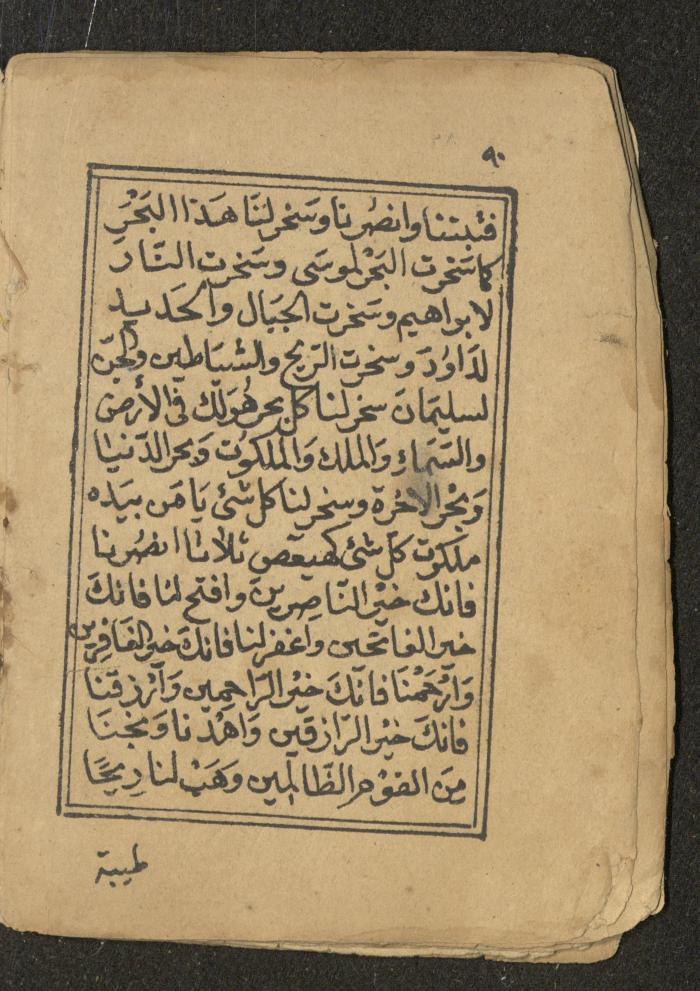 ٩٠
فثبتنا وانصُرنا وسَخر لنَا هَذا البَحْرُ
كما سَخرت البَحْر لموسَى وسَخرت النَّارَ
لابراهيم وسَخرت الجبَال والحَديد
لدَاوُدَ وسخرت الرّيح والشيَاطين والجنّ
لسليمَانَ سخر لنا كل بحر هُوَ لَك في الأرض
والسّمَاءِ وَالملك وَالملكوُت وَبحر الدّنيا
وَبحْر الاخرة وسخر لنا كل شئ يَا مَن بيَده
ملكوت كلّ شئ كهيعص ثلاثا انصُرنا
فانك خيْر النّاصِرين وافتح لنا فانكَ
خير الفاتحين واغفر لنا فانكَ خير الغَافِرين
وَارْحَمْنَا فانّكَ خيْر الرّاحِمين وَارْزقنا
فانكَ خيْر الرّازقين وَاهْدنا وَنجنَا
مِنَ القوْم الظّالمين وَهَبْ لنا ريحًا
طيبة